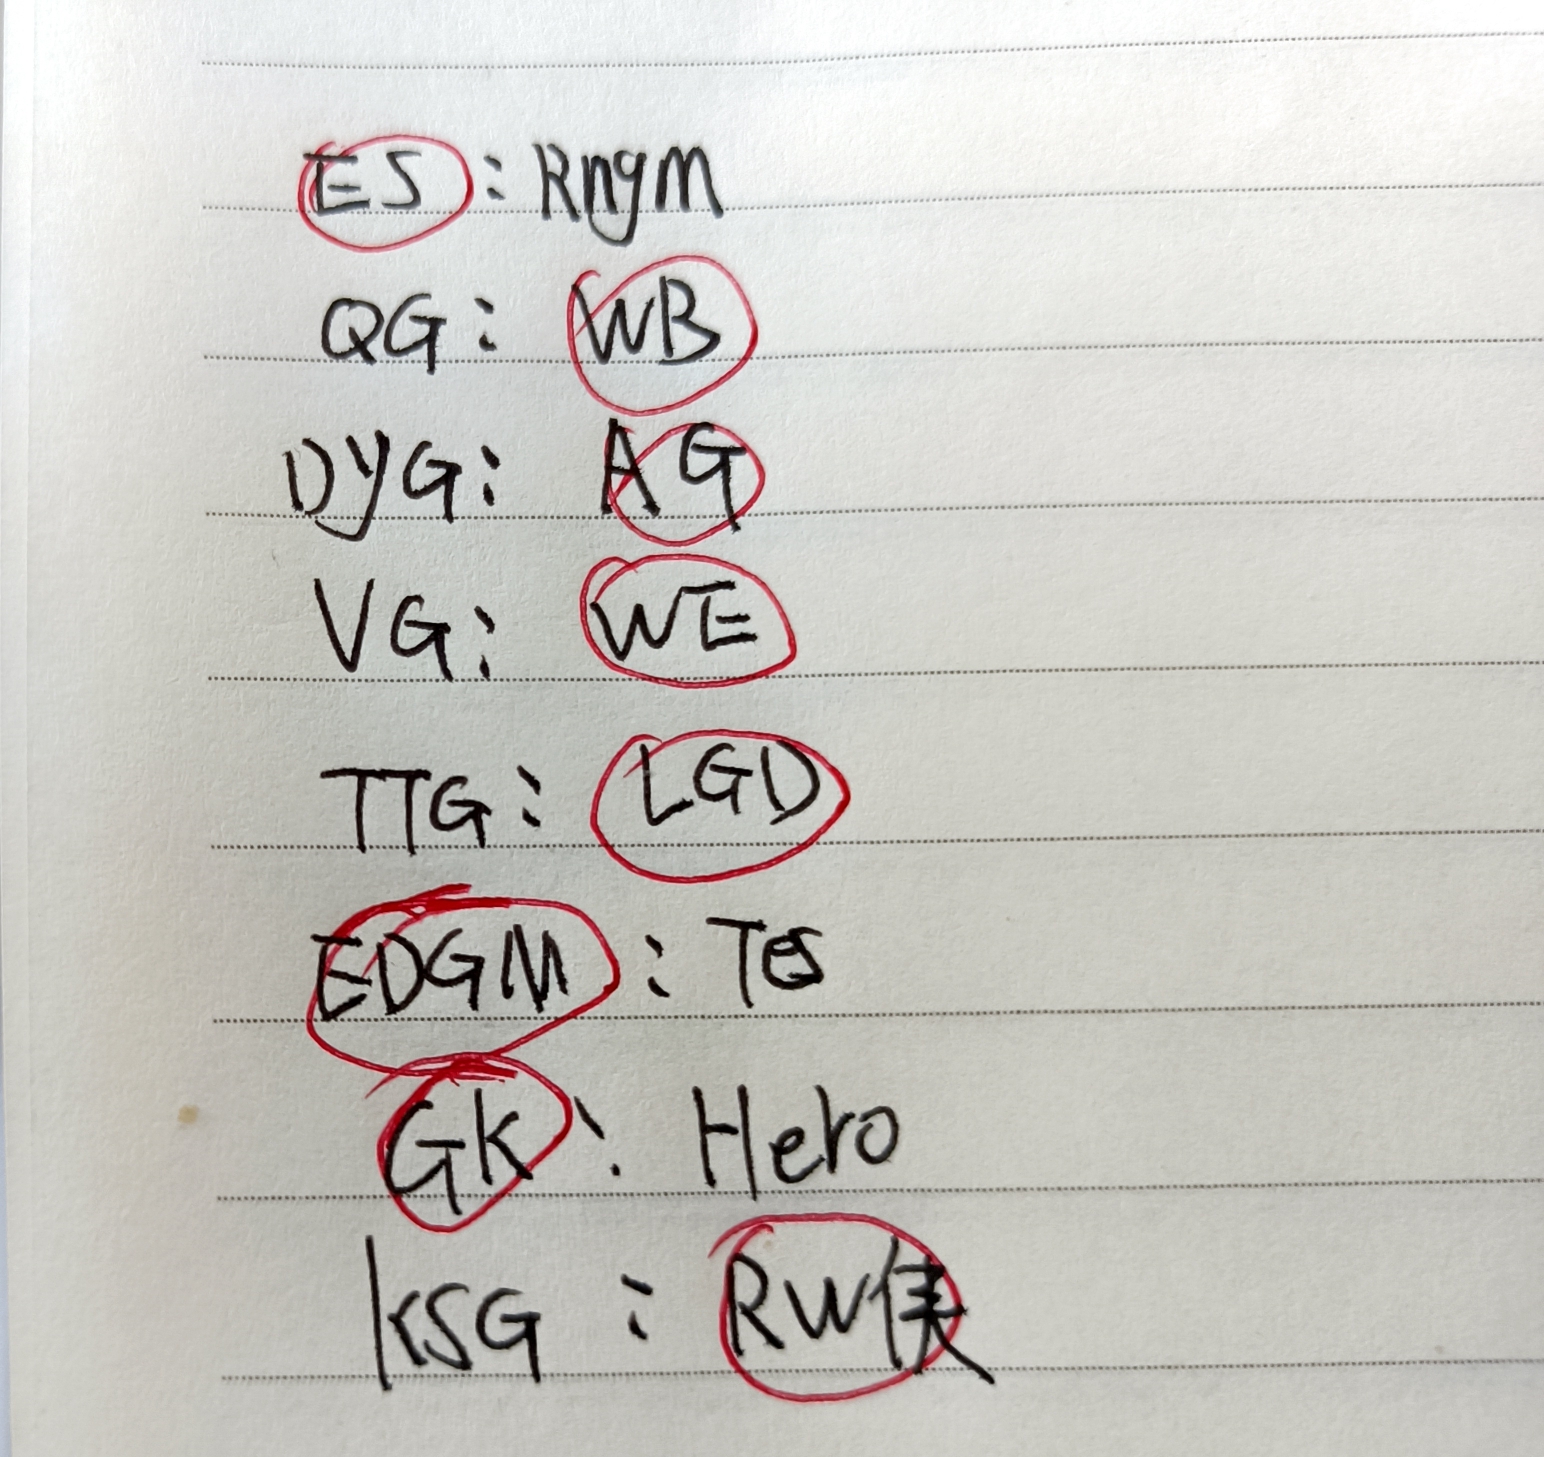 ES：Rngm
QG：WB
DYG：AG
VG：WE
TTG：LGD
EDGM：TES
GK：Hero
KSG：RW侠